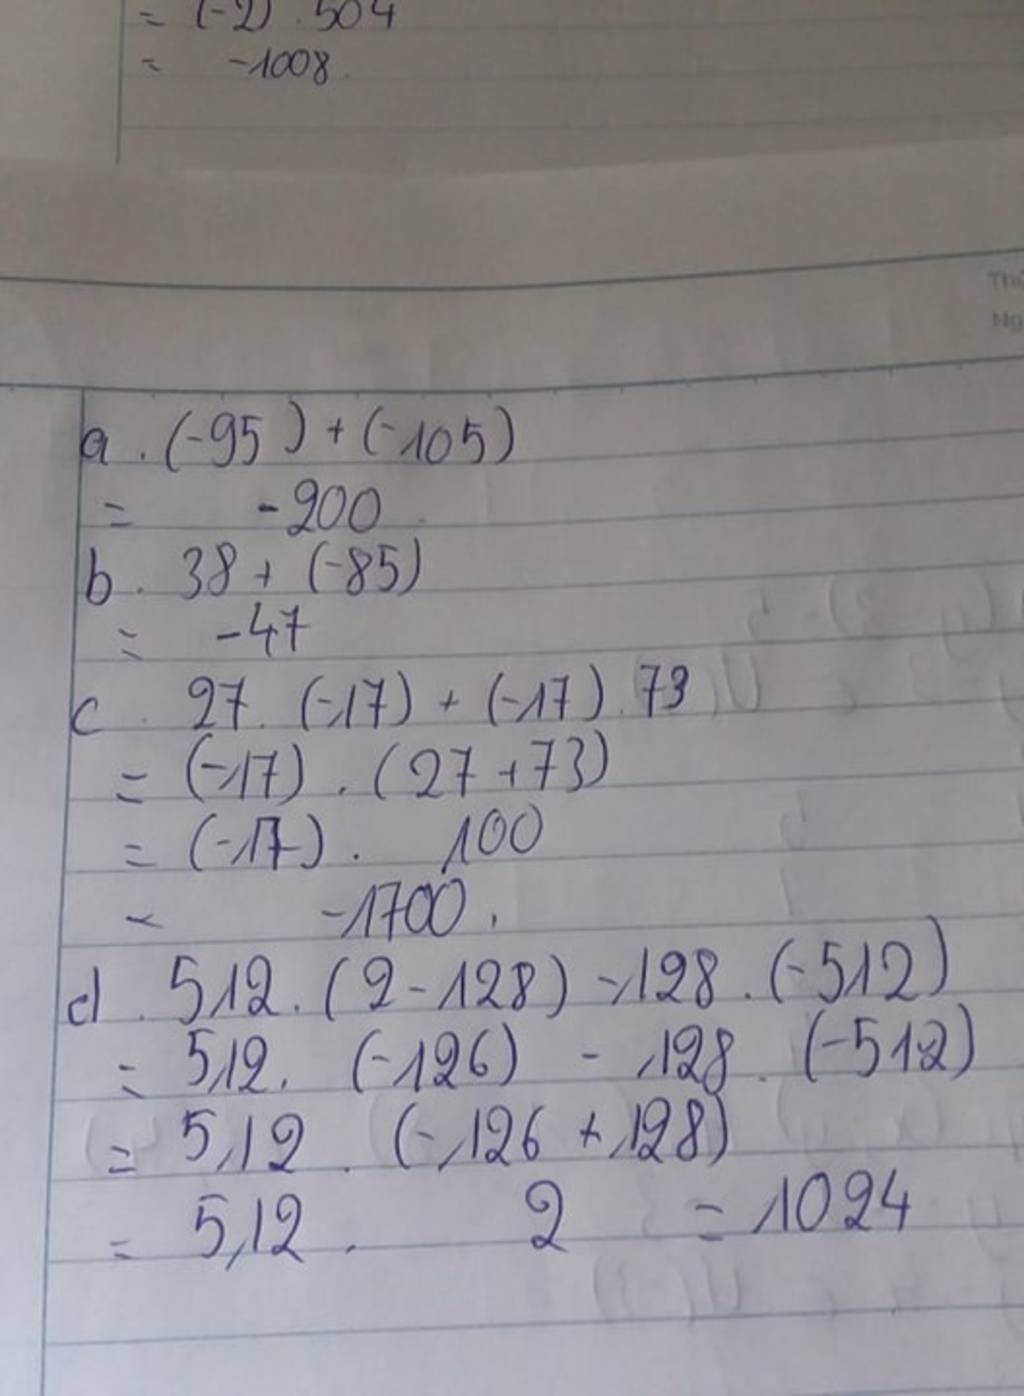 = (-2) . 504
= -1008.
Ng
a. (-95) + (-105)
= -200
b. 38 + (-85)
= -47
c. 27. (-17) + (-17). 73
= (-17) . (27 + 73)
= (-17) . 100
- -1700.
d. 512. (2 - 128) - 128 . (-512)
= 512. (-126) - 128 . (-512)
= 512 . (-126 + 128)
= 512 . 2 = 1024